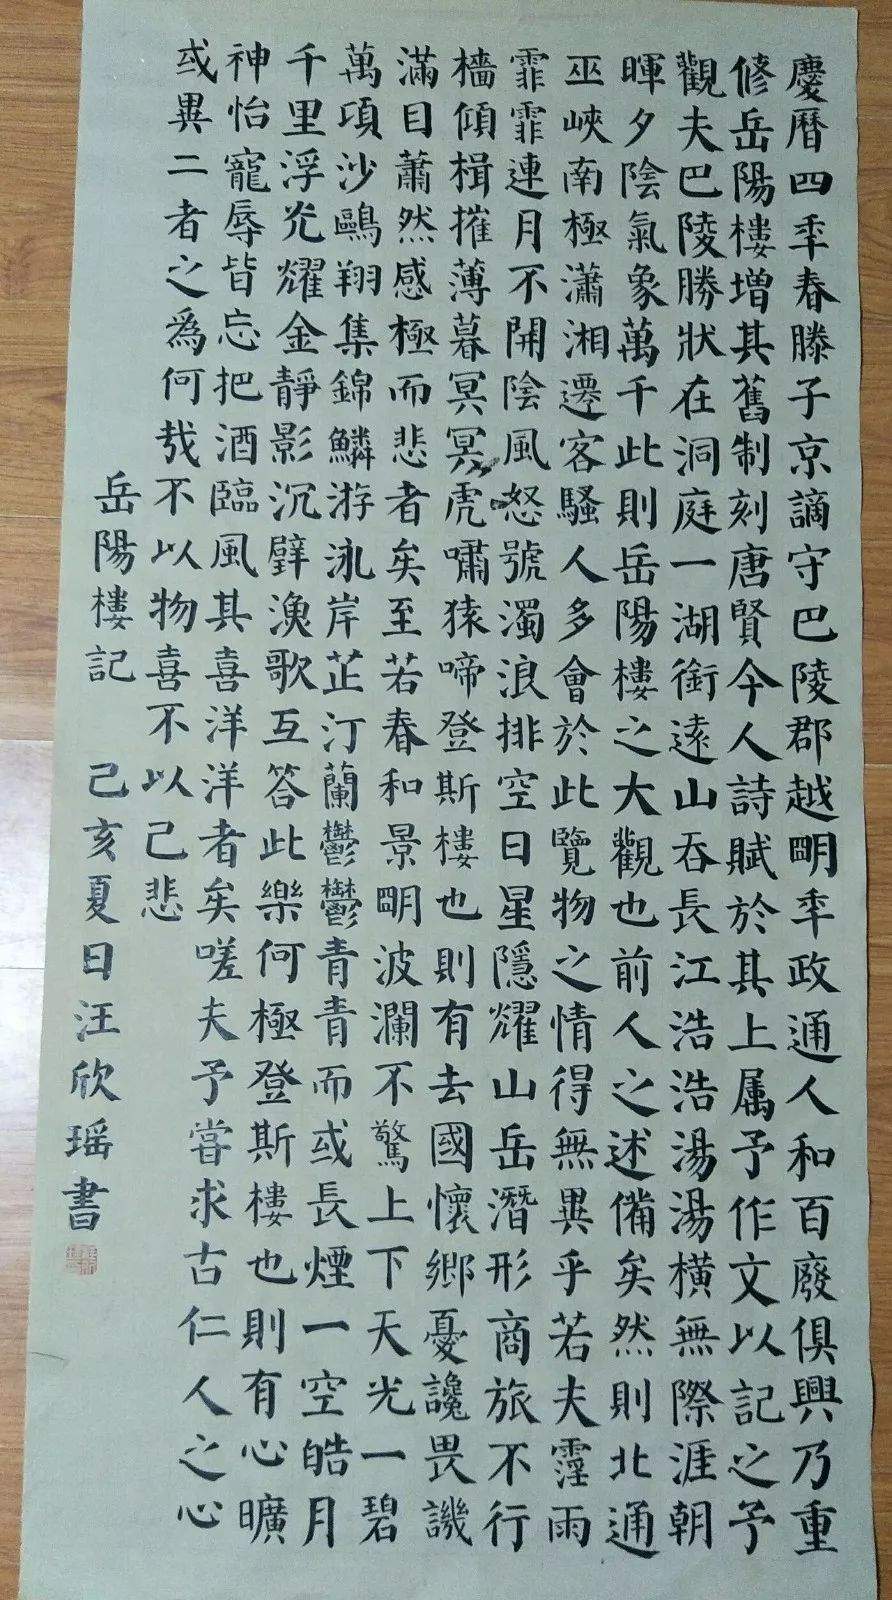 慶曆四秊春滕子京謫守巴陵郡越眀秊政通人和百廢俱興乃重
修岳陽樓增其舊制刻唐賢今人詩賦於其上属予作文以記之予
觀夫巴陵勝狀在洞庭一湖銜遠山吞長江浩浩湯湯橫無際涯朝
暉夕陰氣象萬千此則岳陽樓之大觀也前人之述備矣然則北通
巫峽南極瀟湘遷客騷人多會於此覽物之情得無異乎若夫霪雨
霏霏連月不開陰風怒號濁浪排空日星隱耀山岳潛形商旅不行
檣傾楫摧薄暮冥冥虎嘯猿啼登斯樓也則有去國懷鄉憂讒畏譏
滿目蕭然感極而悲者矣至若春和景眀波瀾不驚上下天光一碧
萬項沙鷗翔集錦鱗游泳岸芷汀蘭鬱鬱青青而或長煙一空皓月
千里浮光耀金靜影沉璧漁歌互答此樂何極登斯樓也則有心曠
神怡寵辱皆忘把酒臨風其喜洋洋者矣嗟夫予嘗求古仁人之心
或異二者之爲何哉不以物喜不以己悲
岳陽樓記 己亥夏日汪欣瑶書